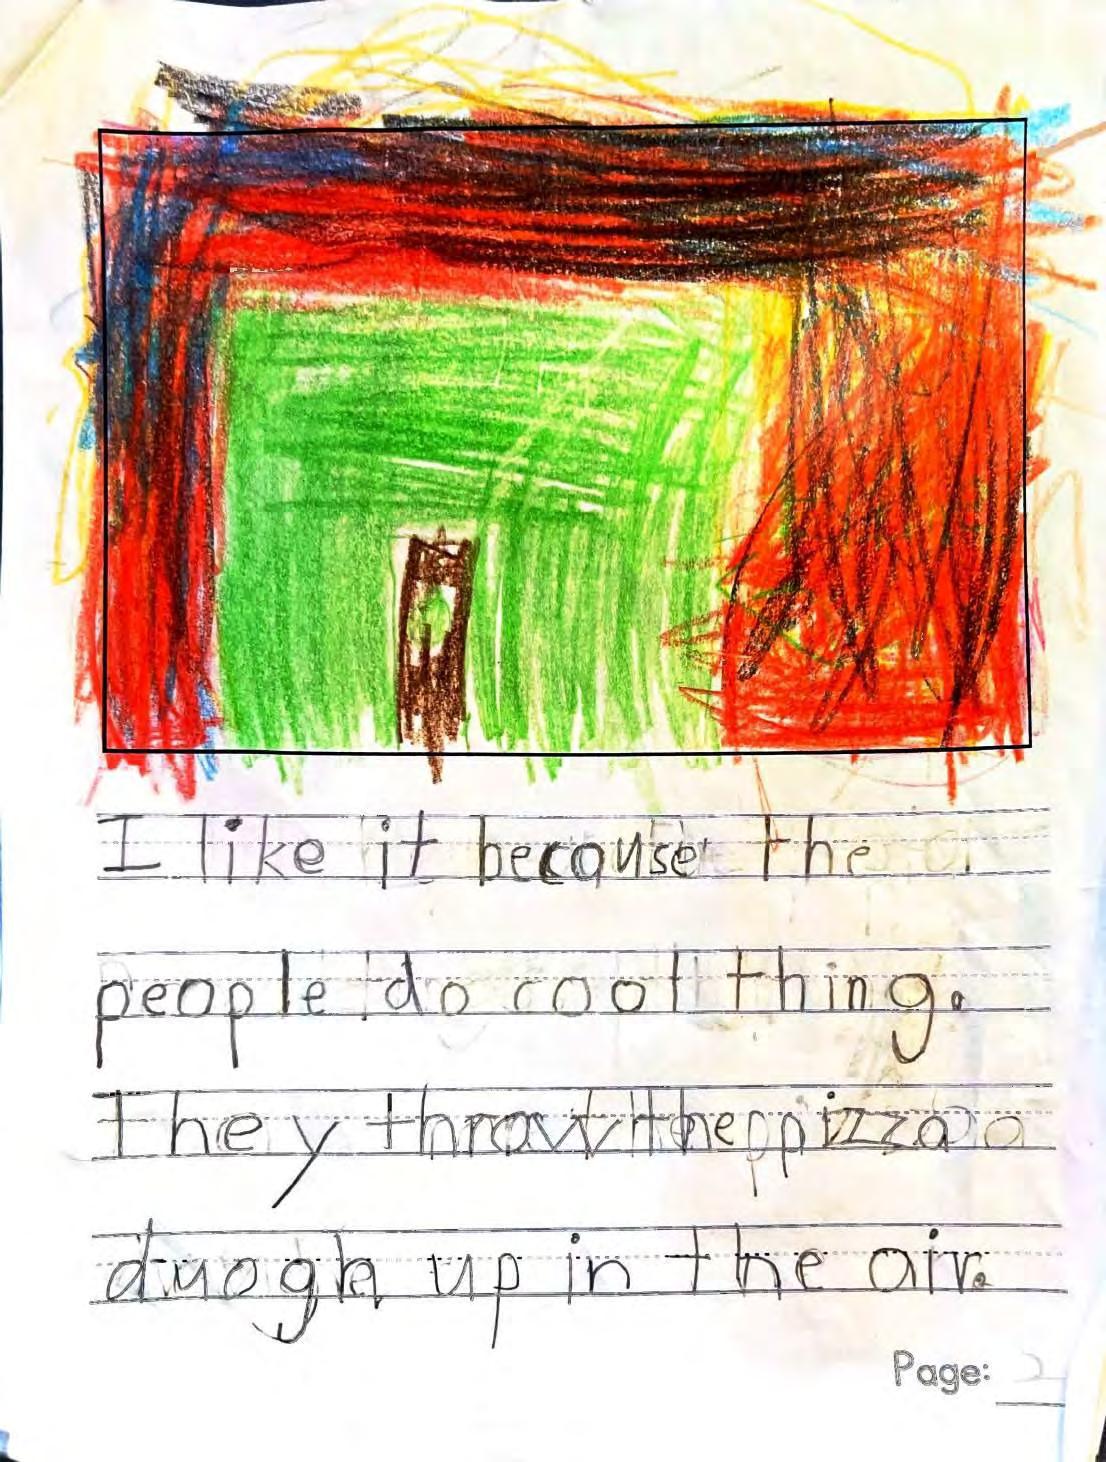 I like it because the
people do cool thing.
they throw the pizza
duogh up in the air.
Page: 2